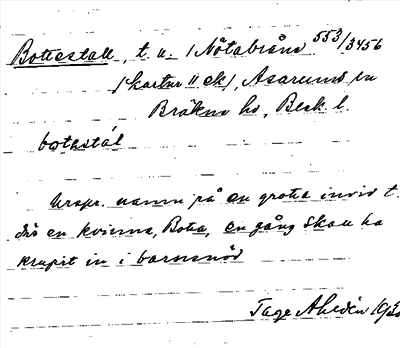 Bottestall, t. u. i Nötabråne 553/3456
(kartur 11 ek), Asarums sn
Bräkne hd, Blek. l.
botastál
Urspr. namn på en grotta invid t.
där en kvinna, Bota, en gång skall ha
krupit in i barnsnöd
Tage Ahldén 19